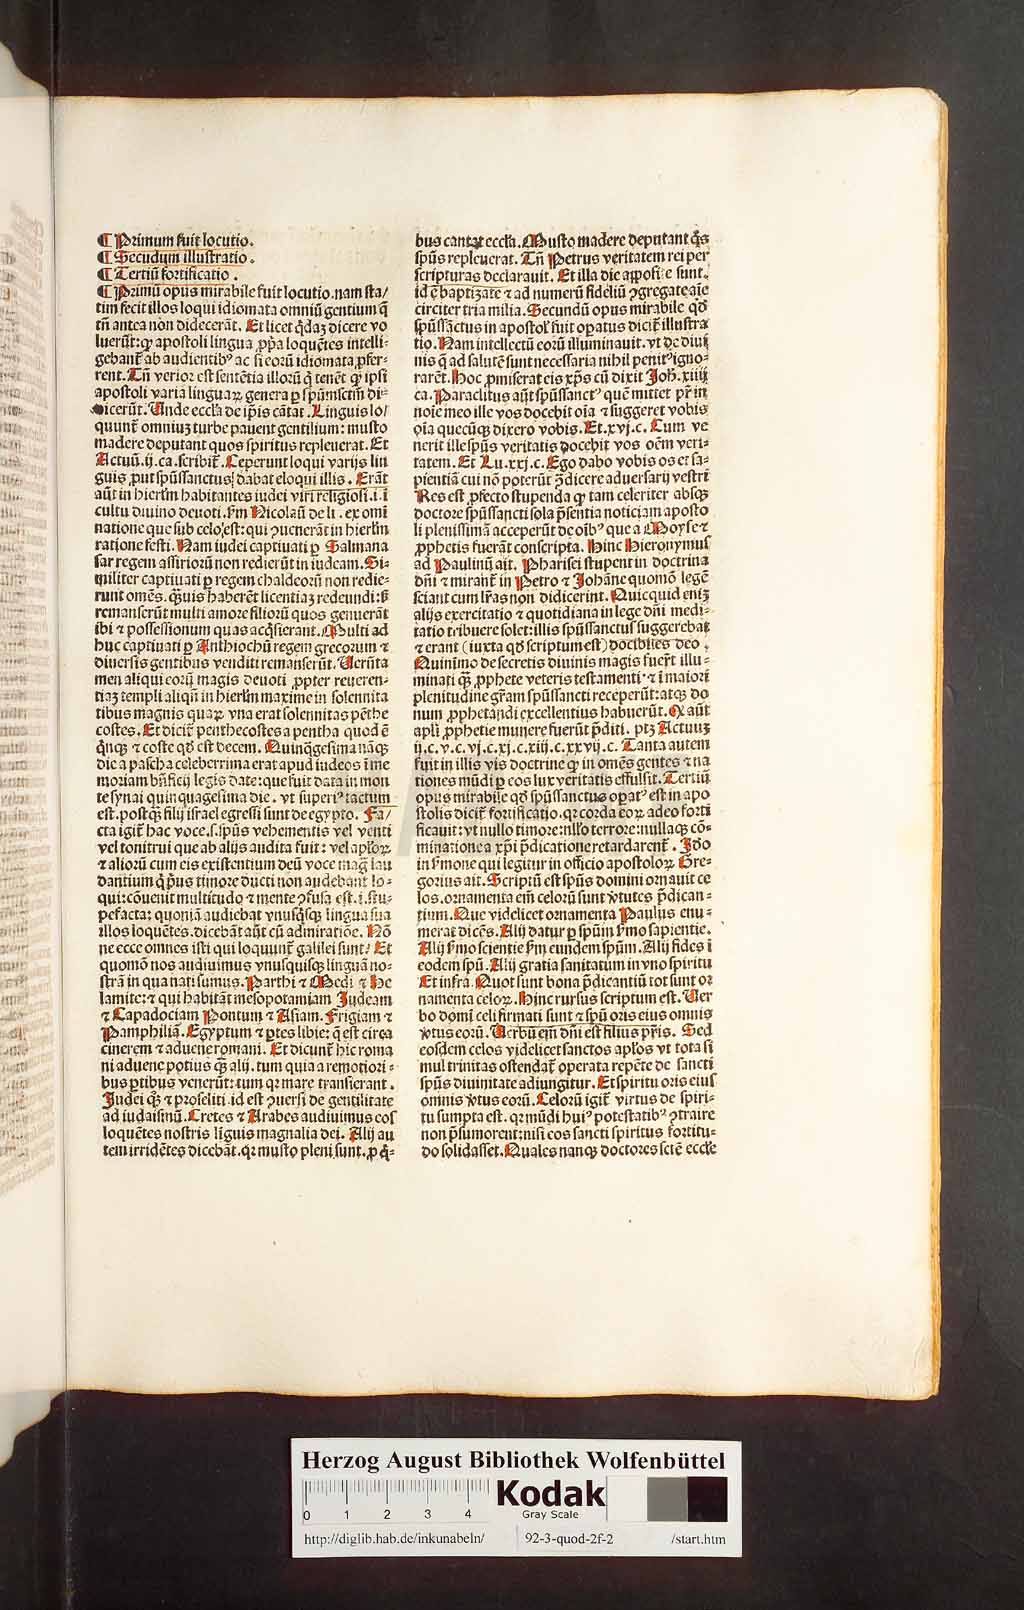 ¶ Primum fuit locutio.
¶ Secūdum illustratio.
¶ Tertiū fortificatio.
¶ Primū opus mirabile fuit locutio. nam sta/
tim fecit illos loqui idiomata omniū gentium q̄
tn̄ antea non didecerāt. Et licet q̇daꝫ dicere vo
luerūt: ꝙ apostoli lingua ꝓpa loquētes intelli-
gebanť ab audientibꝰ ac si eorū idiomata ꝓfer-
rent. Tn̄ verior est sentētia illoꝝ q̄ tenēt ꝙ ipsi
apostoli varia linguaꝝ genera ꝑ spūmsctm̄ di-
dicerūt. Unde eccľa de ip̄is cātat. Linguis lo/
quunť omniuꝫ turbe pauent gentilium: musto
madere deputant quos spiritus repleuerat. Et
Actuū.ij.ca. scribiť. Ceperunt loqui varijs lin
guis ꝓut spūssanctus dabat eloqui illis. Erāt
aūt in hierľm habitantes iudei viri religiosi.i.ī
cultu diuino deuoti. ẜm Nicolaū de li. ex omī
natione que sub celo est: qui ꝯuenerāt in hierľm
ratione festi. Nam iudei captiuati ꝑ Salmana
sar regem assiriorū non redierūt in iudeam. Si-
militer captiuati ꝑ regem chaldeorū non redie-
runt omēs. q̄uis haberēt licentiaꝫ redeundi: ẜ
remanserūt multi amore filiorū quos genuerāt
ibi ⁊ possessionum quas acq̇sierant. Multi ad
huc captiuati ꝑ Anthiochū regem grecorum ⁊
diuersis gentibus venditi remanserūt. Uerūta
men aliqui eorū magis deuoti ꝓpter reueren-
tiaꝫ templi aliqn̄ in hierľm maxime in solennita
tibus magnis quaꝝ vna erat solennitas pēthe
costes. Et diciť penthecostes a pentha quod ē
q̇nqꝫ ⁊ coste qđ est decem. Quinq̄gesima nāqꝫ
die a pascha celeberrima erat apud iudeos ī me
moriam bn̄ficij legis date: que fuit data in mon
te synai quinquagesima die. vt superiꝰ tactum
est. postq̄ꝫ filij israel egressi sunt de egypto. Fa/
cta igiť hac voce.s. spūs vehementis vel venti
vel tonitrui que ab alijs audita fuit: vel aplōꝝ
⁊ aliorū cum eis existentium deū voce mag̃ lau
dantium q̇ p̄us timore ducti non audebant lo-
qui: cōuenit multitudo ⁊ mente ꝯfusa est.i. stu-
pefacta: quoniā audiebat vnusq̇sqꝫ lingua sua
illos loquētes. dicebāt aūt cū admiratiōe. Nō
ne ecce omnes isti qui loquunť galilei sunt/ Et
quomō nos audiuimus vnusquisqꝫ linguā no-
strā in qua nati sumus. Parthi ⁊ Medi ⁊ He
lamite: ⁊ qui habitāt mesopotamiam Judeam
⁊ Capadociam Pontum ⁊ Asiam. Frigiam ⁊
Pamphiliā. Egyptum ⁊ ꝑtes libie: q̄ est circa
cinerem ⁊ aduene romani. Et dicunť hic roma
ni aduene potius q̄ꝫ alij. tum quia a remotiori-
bus ꝑtibus venerūt: tum qꝛ mare transierant.
Judei qꝫ ⁊ proseliti. id est ꝯuersi de gentilitate
ad iudaismū. Cretes ⁊ Arabes audiuimus eos
loquētes nostris linguis magnalia dei. Alij au
tem irridētes dicebāt. qꝛ musto pleni sunt. ꝓ q̇-
bus cantat eccľa. Musto madere deputant q̇s
spūs repleuerat. Tn̄ Petrus veritatem rei per
scripturas declarauit. Et illa die appositе sunt.
id ē baptizate ⁊ ad numerū fideliū ꝯgregate aīe
circiter tria milia. Secundū opus mirabile qđ
spūssāctus in apostoľ fuit opatus diciť illustra
tio. Nam intellectū eorū illuminauit. vt de diui
nis q̄ ad salutē sunt necessaria nihil penitꝰ igno-
rarēt. Hoc ꝓmiserat eis xp̄s cū dixit Joh̄. xiiij
ca. Paraclitus aūt spūssanctꝰ quē mittet pr̄ in
noīe meo ille vos docebit oīa ⁊ suggeret vobis
oīa quecūqꝫ dixero vobis. Et.xvj.c. Cum ve
nerit ille spūs veritatis docebit vos oēm veri-
tatem. Et Lu.xxj.c. Ego dabo vobis os et sa-
pientiā cui nō poterūt ꝯ̄dicere aduersarij vestri
Res est ꝓfecto stupenda ꝙ tam celeriter absqꝫ
doctore spūssancti sola p̄sentia noticiam aposto
li plenissimā acceperūt de oībꝰ que a Moyse ⁊
ꝓphetis fuerāt conscripta. Hinc Hieronymus
ad Paulinū ait. Pharisei stupent in doctrina
dn̄i ⁊ miranť in Petro ⁊ Johāne quomō legē
sciant cum lr̄as non didicerint. Quicquid eniꝫ
alijs exercitatio ⁊ quotidiana in lege dn̄i medi-
tatio tribuere solet: illis spūssanctus suggerebat
⁊ erant (iuxta qđ scriptum est) docibiles deo.
Quinimo de secretis diuinis magis fuerť illu-
minati q̄ꝫ ꝓphete veteris testamenti: ⁊ ī maiori
plenitudine gr̄am spūssancti receperūt: atqꝫ do
num ꝓphetandi excellentius habuerūt. Q̇ aūt
apľi ꝓphetie munere fuerūt p̄diti. ptꝫ Actuuꝫ
ij.c.v.c.vj.c.xj.c.xiij.c.xxvij.c. Tanta autem
fuit in illis vis doctrine ꝙ in omēs gentes ⁊ na
tiones mūdi ꝑ eos lux veritatis effulsit. Tertiū
opus mirabile qđ spūssanctus opatꝰ est in apo
stolis diciť fortificatio. qꝛ corda eoꝝ adeo forti
ficauit: vt nullo timore: nllo terrore: nullaqꝫ cō-
minatione a xp̄i p̄dicatione retardarenť. Jđo
in ẜmone qui legitur in officio apostoloꝝ Gre-
gorius ait. Scriptū est spūs domini ornauit ce
los. ornamenta em̄ celorū sunt v̓tutes p̄dican-
tium. Que videlicet ornamenta Paulus enu-
merat dicēs. Alij datur ꝑ spūm ẜmo sapientie.
Alij ẜmo scientie ẜm eundem spūm. Alij fides ī
eodem spū. Alij gratia sanitatum in vno spiritu
Et infra. Quot sunt bona p̄dicantiū tot sunt or
namenta celoꝝ. Hinc rursus scriptum est. Uer
bo domī celi firmati sunt ⁊ spū oris eius omnis
v̓tus eorū. Uerbū em̄ dn̄i est filius pr̄is. Sed
eosdem celos videlicet sanctos apľos vt tota si
mul trinitas ostendať operata repēte de sancti
spūs diuinitate adiungitur. Et spiritu oris eius
omnis v̓tus eorū. Celorū igiť virtus de spiri-
tu sumpta est. qꝛ mūdi huiꝰ potestatibꝰ ꝯtraire
non p̄sumerent: nisi eos sancti spiritus fortitu-
do solidasset. Quales nanqꝫ doctores scīē eccľe
Herzog August Bibliothek Wolfenbüttel
0 1 2 3 4
Kodak
Gray Scale
http://diglib.hab.de/inkunabeln/ 92-3-quod-2f-2 /start.htm